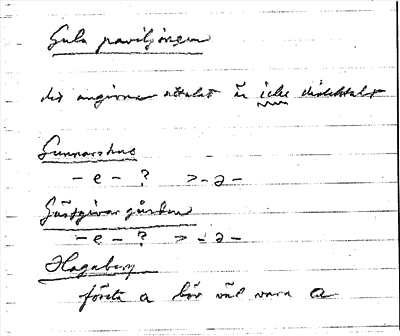 Gula paviljongen
det angivna uttalet är icke dialektalt
Gunnarshus
- e - ? > - ə -
Gästgivargården
- e - ? > - ə -
Hagaberg
första a bör väl vara ɑ